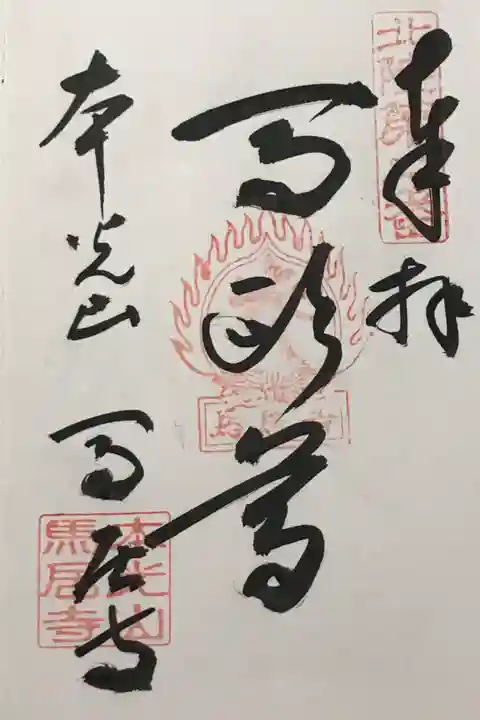 奉拝
馬頭尊
本光山 馬居寺
本光山
馬居寺